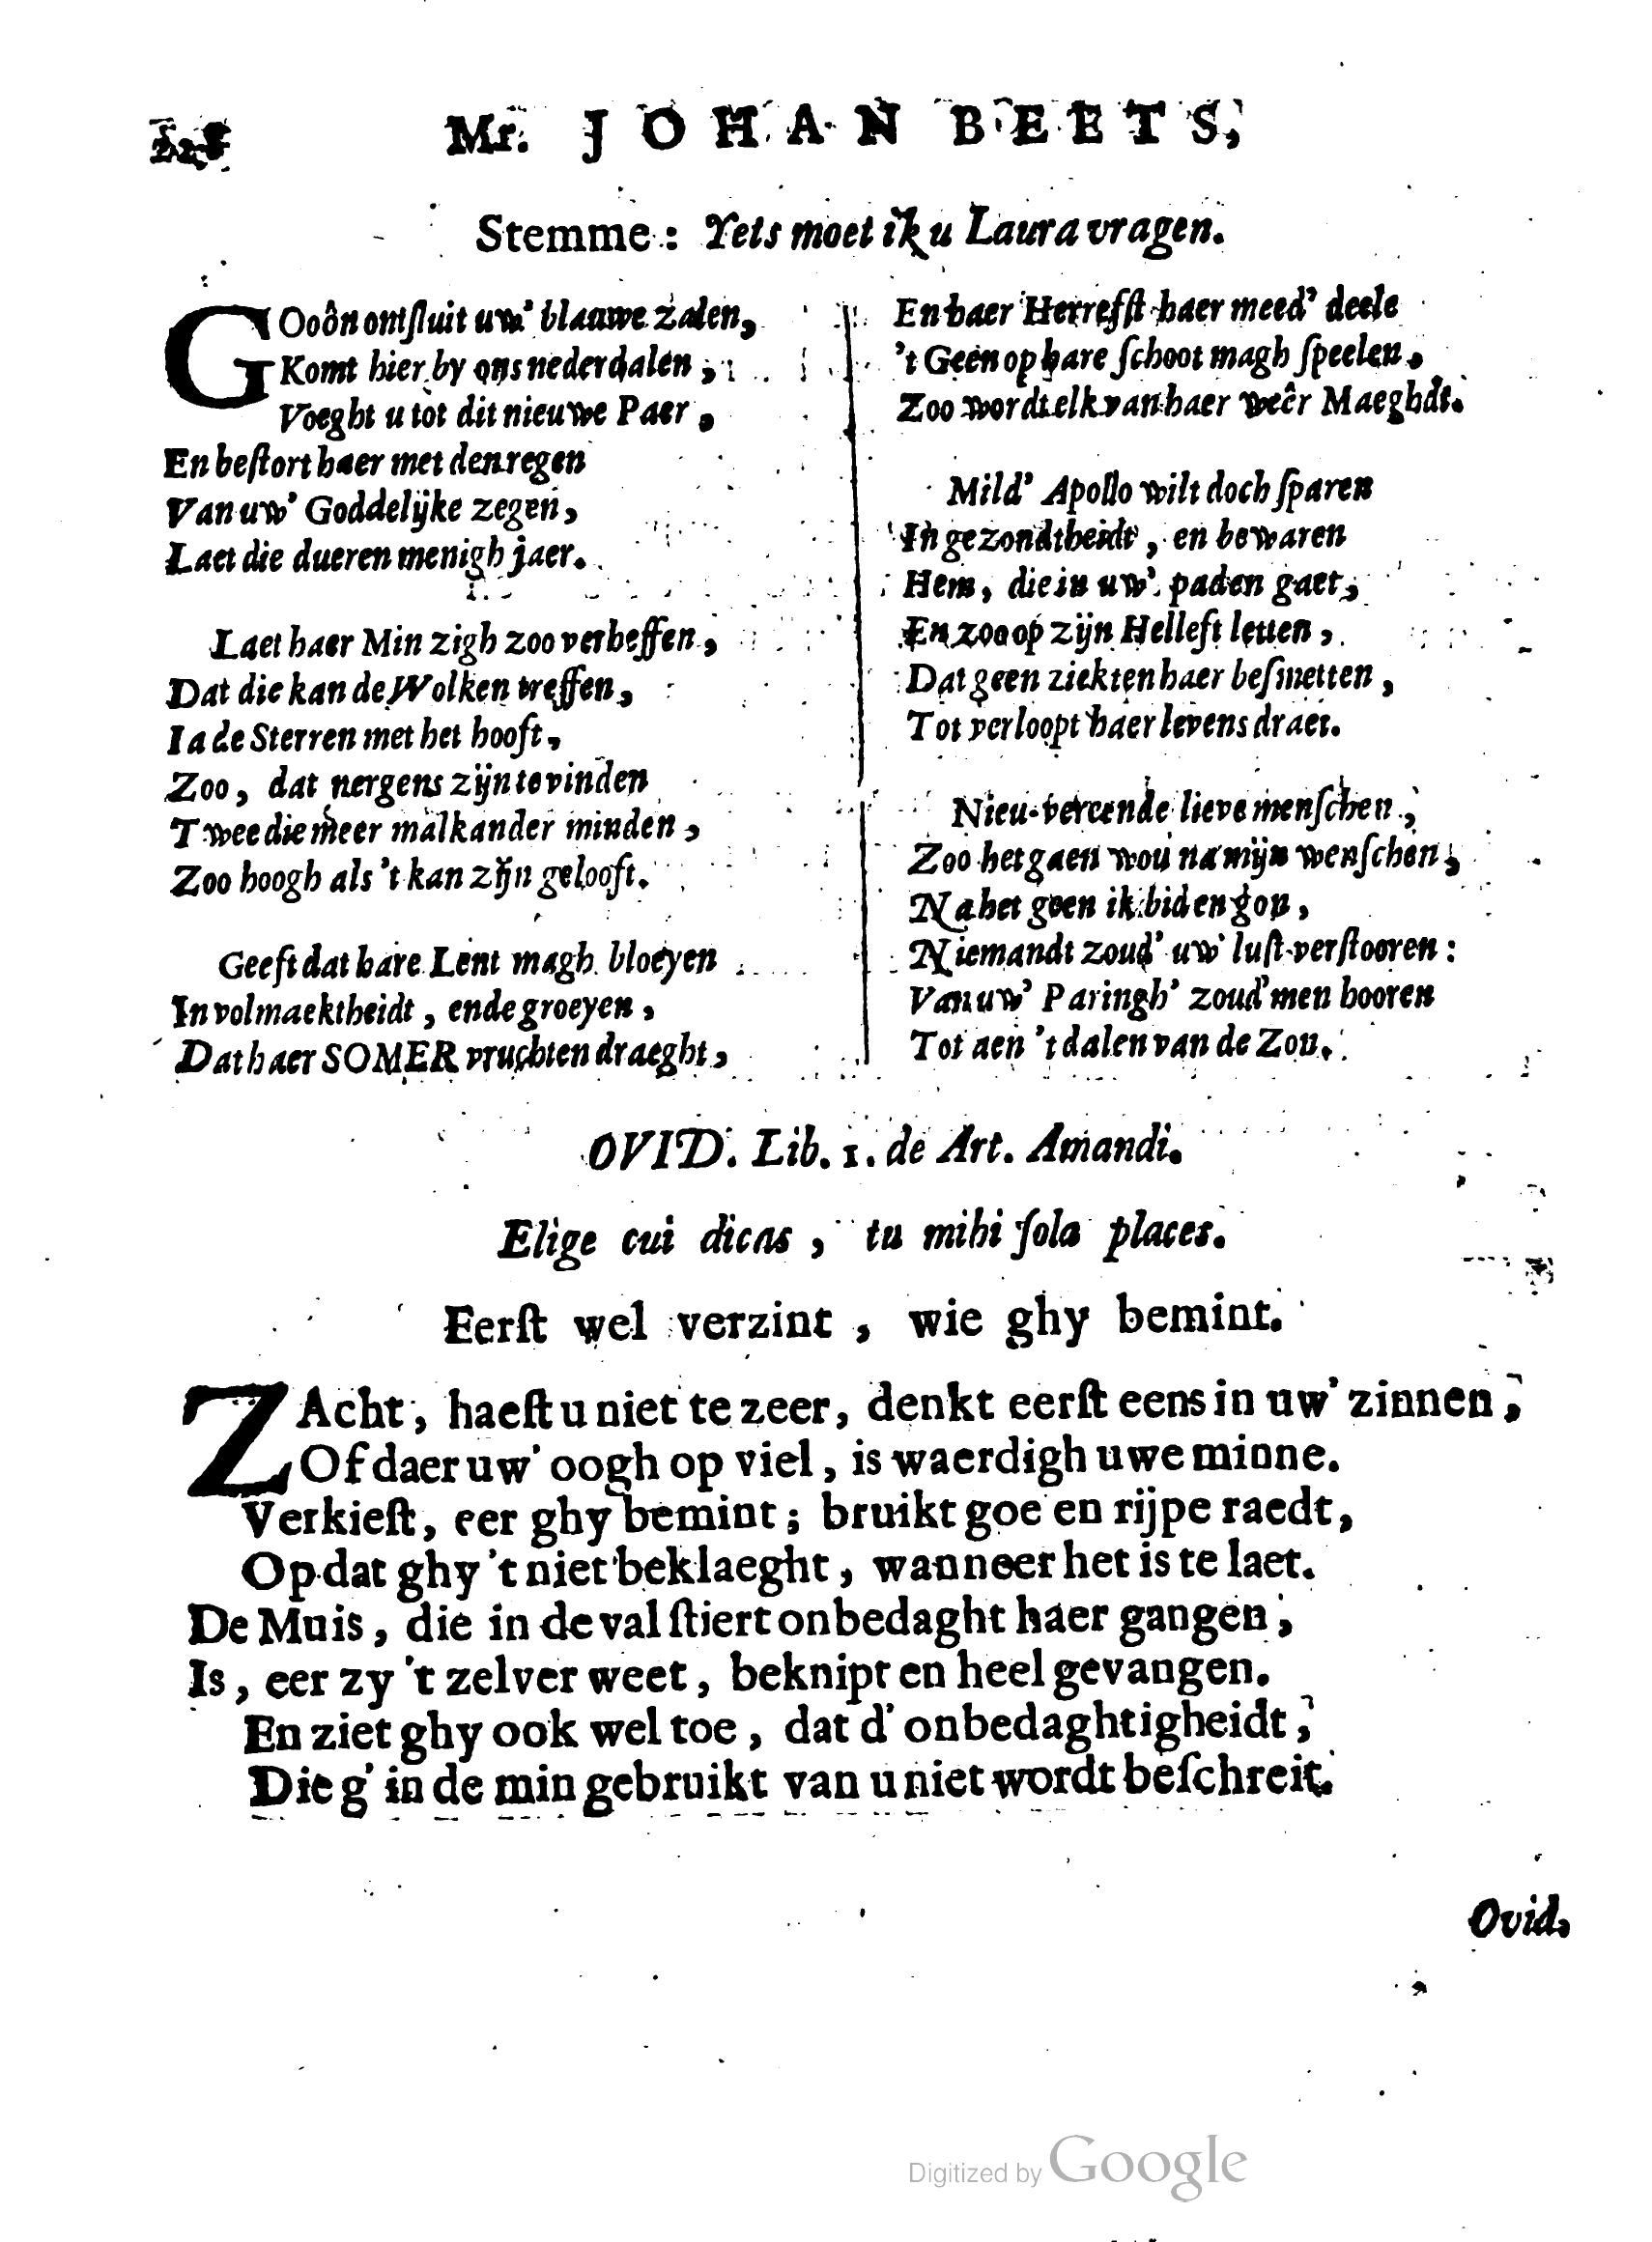 Mr. JOHAN BEETS,
Stemme: Yets moet ik u Laura vragen.
GOoôn ontſluit uw' blauwe zalen,
Komt hier by ons nederdalen,
Voeght u tot dit nieuwe Paer,
En beſtort haer met den regen
Van uw' Goddelijke zegen,
Laet die dueren menigh jaer.
Laet haer Min zigh zoo verheffen,
Dat die kan de Wolken treffen,
Ia de Sterren met het hooft,
Zoo, dat nergens zijn te vinden
Twee die meer malkander minden,
Zoo hoogh als 't kan zijn gelooft.
Geeft dat hare Lent magh bloeyen
In volmaektheidt, ende groeyen,
Dat haer SOMER vruchten draeght,
En haer Herrefſt haer meed' deele
't Geen op hare ſchoot magh ſpeelen.
Zoo wordt elk van haer weêr Maeghdt.
Mild' Apollo wilt doch ſparen
In gezondtheidt, en bewaren
Hem, die in uw' paden gaet,
En zoo op zijn Helleft letten,
Dat geen ziekten haer beſmetten,
Tot verloopt haer levens draet.
Nieu-vereende lieve menſchen,
Zoo het gaen wou na mijn wenſchen,
Na het geen ik bid en gon,
Niemandt zoud' uw' luſt verſtooren:
Van uw' Paringh' zoud' men hooren
Tot aen 't dalen van de Zon.
OVID. Lib. 1. de Art. Amandi.
Elige cui dicas, tu mihi ſola places.
Eerſt wel verzint, wie ghy bemint.
ZAcht, haeſt u niet te zeer, denkt eerſt eens in uw' zinnen,
Of daer uw' oogh op viel, is waerdigh uwe minne.
Verkieſt, eer ghy bemint; bruikt goe en rijpe raedt,
Op dat ghy 't niet beklaeght, wanneer het is te laet.
De Muis, die in de val ſtiert onbedaght haer gangen,
Is, eer zy 't zelver weet, beknipt en heel gevangen.
En ziet ghy ook wel toe, dat d' onbedaghtigheidt,
Die g' in de min gebruikt van u niet wordt beſchreit.
Ovid.
Digitized by Google